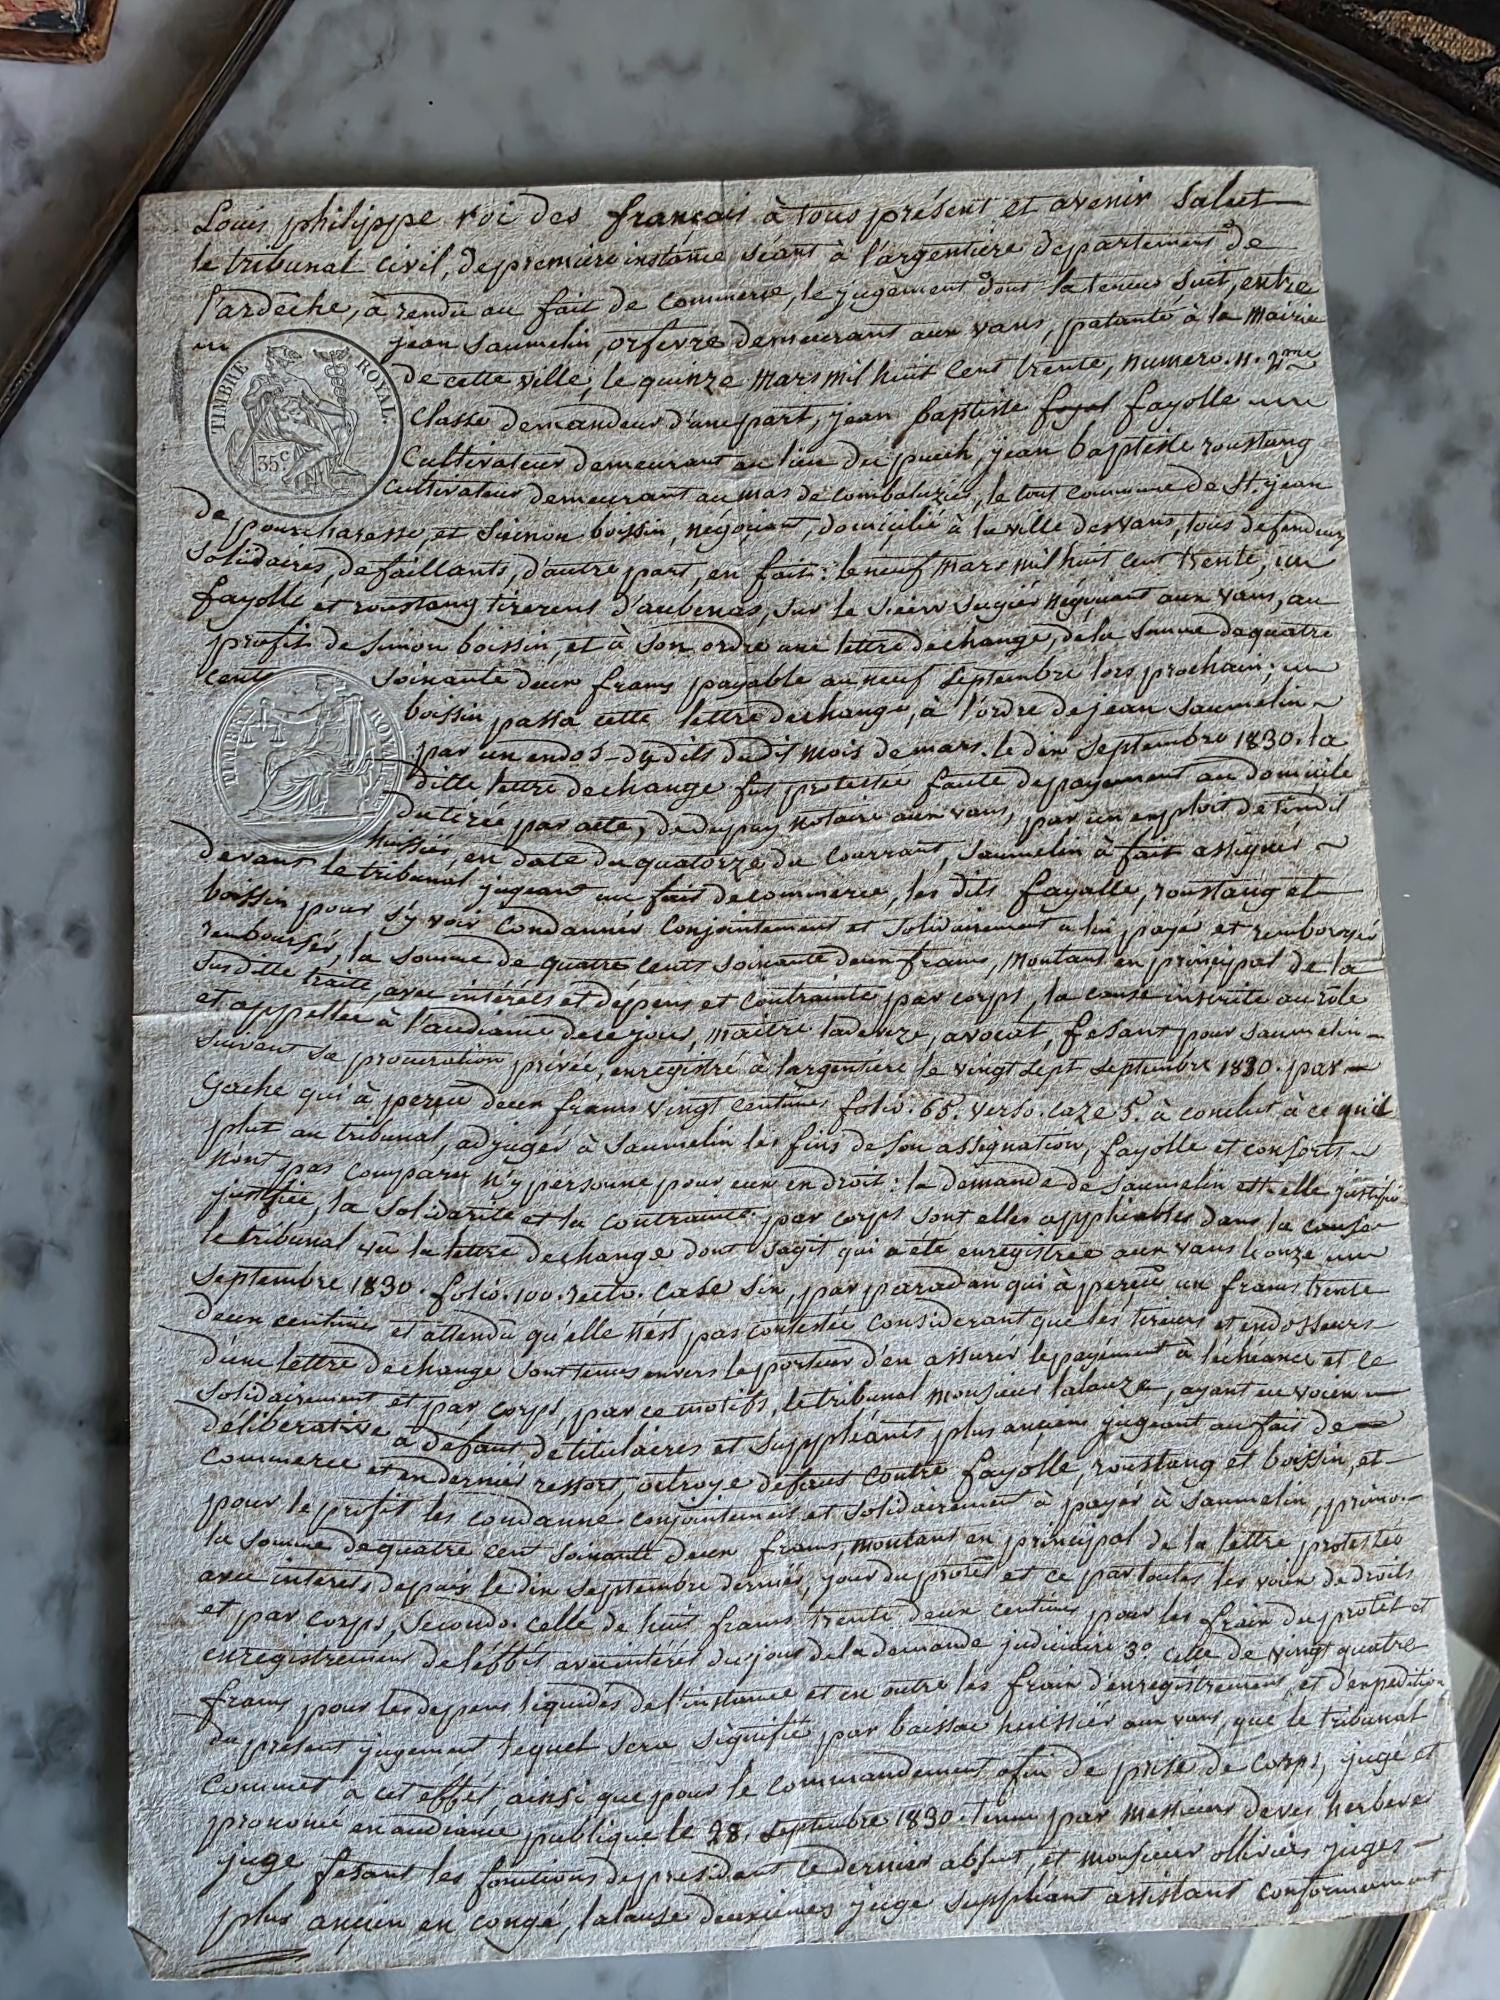 Louis philippe roi des français à tous présent et avenir Salut
le tribunal civil, de premiere instance séant à l'argentière departement de
l'ardèche, à rendu au fait de commerse, le jugement dont la teneur suit, entre
jean saumelin, orfevre demeurant aux vans, patanté à la mairie
de cette ville, le quinze mars mil huit cent trente, numero. 4. 2me
classe demandeur d'une part, jean baptiste fayolle
TIMBRE ROYAL
35 c
cultivateur demeurant au lieu du puech, jean baptiste roustang
cultivateur demeurant au mas de combaluzier, le tout commune de St. jean
de pourcharesse, et Simon boissin, négociant, domicilié à la ville des vans, tous defendeurs
solidaires, defaillants, d'autre part, en fait: le neuf mars mil huit cent trente,
fayolle et roustang tirerent d'aubenas, sur le sieur sugier négociant aux vans, au
profit de simon boissin, et à son ordre une lettre de change, de la somme de quatre
cents soixante deux francs payable au neuf septembre lors prochain;
boissin passa cette lettre de change, à l'ordre de jean saumelin
TIMBRE ROYAL
par un endos du dits dudit mois de mars. le dix septembre 1830. la
ditte lettre de change fut protestée faute de payement au domicile
du tirée par acte, de notaire aux vans, par un exploit de
hussier, en date du quatorze du courrant, saumelin à fait assigner
devant le tribunal jugeant au fait de commerce, les dits fayolle, roustang et
boissin pour s'y voir condanner conjointement et solidairement a lui payé et
rembourser, la somme de quatre cents soixante deux francs, montant en principal de la
susditte traite, avec intérêts et dépens et contrainte par corps, la cause inscrite au rôle
et appellée à l'audiance de ce jour, maitre ladevèze, avocat, fesant pour saumelin
suivant sa procuration privée, enregistré à largentière le vingt sept septembre 1830. par
Gache qui à perçu deux francs vingt centimes folio. 65. verso. caze 5. à conclut à ce qu'il
plut au tribunal, adjuger à saumelin les fins de son assignation, fayolle et consorts
n'ont pas comparu n'y personne pour eux en droit: la demande de saumelin est elle
justifiée, la solidarité et la contrainte par corps sont elles applicables dans la cause
le tribunal vû la lettre de change dont s'agit qui a été enregistrée aux vans le onze
septembre 1830. folio. 100. recto. case six, par paradan qui à perçu un francs trente
deux centimes et attendu qu'elle n'est pas contestée considerant que les tireurs et endosseurs
d'une lettre de change sont tenus envers le porteur d'en assurer le payement à l'écheance et ce
solidairement et par corps, par ce motifs, le tribunal monsieur lalauze, ayant eu voien
déliberative à défaut de titulaires et suppléants plus anciens jugeant au fait de
commerce et en dernier ressort, octroye defaut contre fayolle, roustang et boissin, et
pour le profit les condanne conjointement et solidairement à payer à saumelin, primo.
la somme de quatre cent soixante deux francs, montant en principal de la lettre protestée
avec intérets depuis le dix septembre dernier, jour du protêt et ce par toutes les voiex de droits
et par corps, secondo. celle de huit francs trente deux centimes pour les frain du protêt et
enregistrement de l'effêt avec intérêt du jour de la demande judiciaire 3o. celle de vingt quatre
francs pour les depens liquidés de l'instance et en outre les frain d'enregistrement, et d'expedition
du présent jugement lequel sera signifié par boissac huissier aux vans, que le tribunal
commet à cet effet, ainsi que pour le commandement afin de prise de corps, jugé et
prononcé en audiance publique le 28. septembre 1830. tenue par messieurs
juge fesant les fonctions de president le dernier absent, et monsieur ollivier juges
plus ancien en congé, lalause deuxiemes juge suppléant assistant conformement